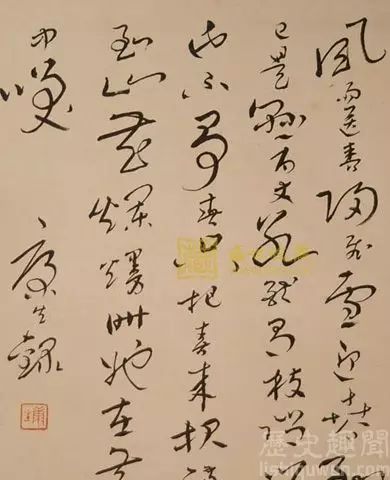 風雨送春歸飛雪迎春
已是懸百丈枝俏
也不爭春只把春來報
到山花爛熳時她在
中笑
康生錄
歷史趣聞
lishiquwen